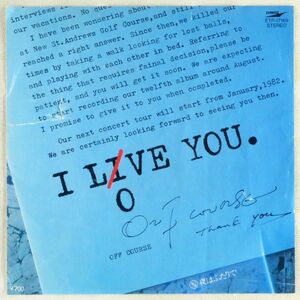 interviews i
our vacations. No que
I have been wondering about
at New St.Andrews Golf Course, and still our
reached a right answer. Since then, we killed our
times by taking a walk looking for lost balls,
and playing with each other in bed. Referring to
the thing that requires fainal decision, please be
patient, and you will get it soon. We are expecting
to start recording our twelfth album around august.
I promise to give it to you when completed.
Our next concert tour will start from January, 1982.
We are certainly looking forward to seeing you then.
I LIVE YOU.
O
Off course
thank you
OFF COURSE
¥700
ETP-17169
STEREO